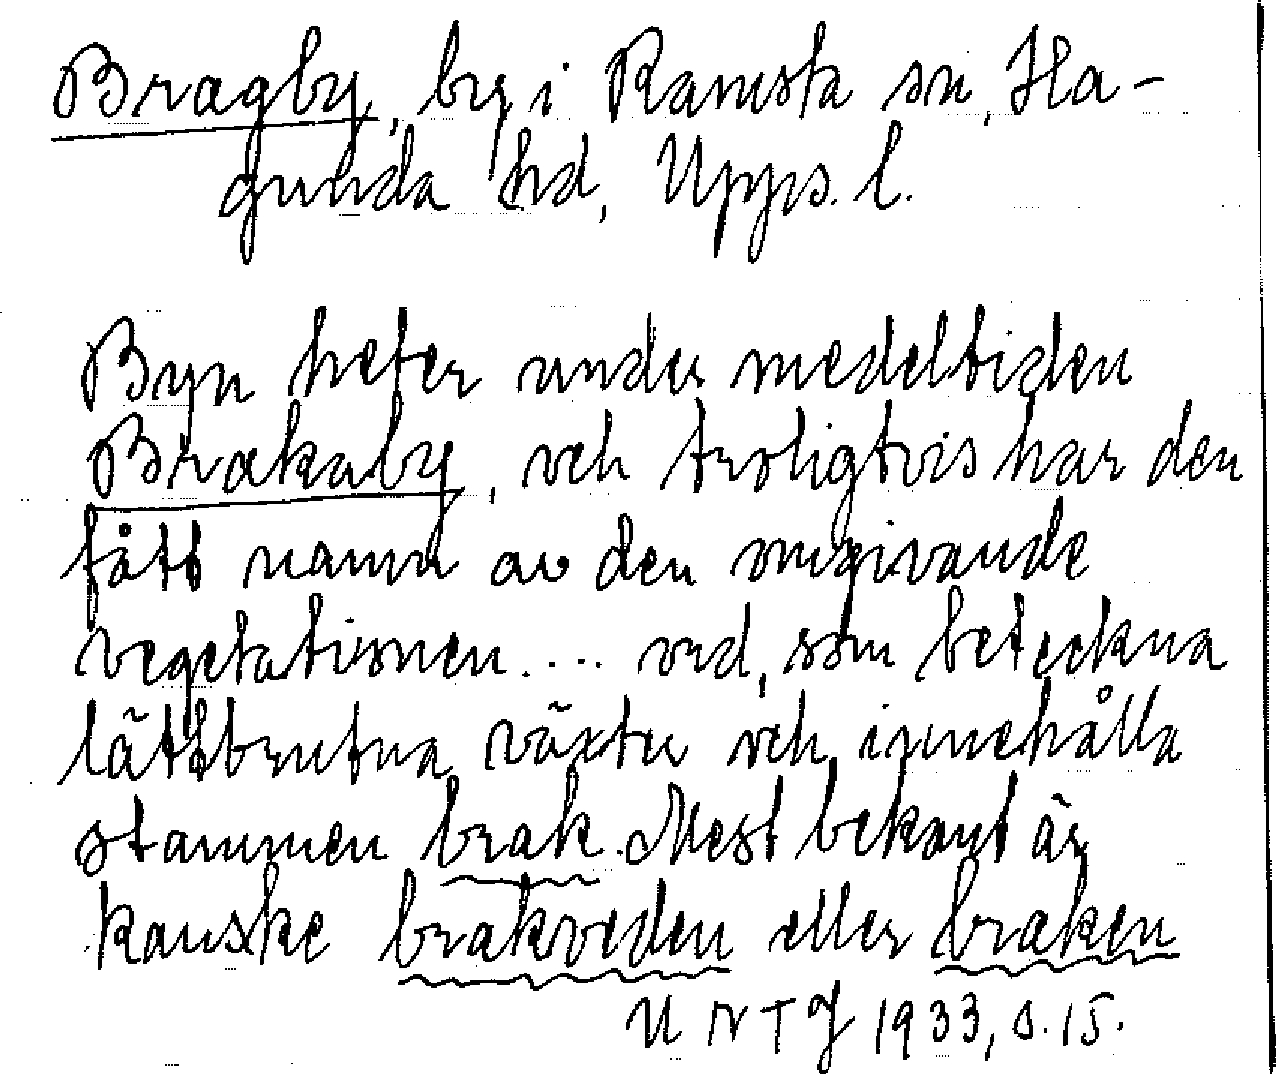 Bragby, by i Ramsta sn, Ha-
gunda hd, Upps. l.
Byn heter under medeltiden
Brakaby, och troligtvis har den
fått namn av den omgivande
vegetationen.... ord, som beteckna
lättbrutna växter och innehålla
stammen brak. Mest bekant är
kanske brakveden eller braken
UNTJ 1933, s. 15.